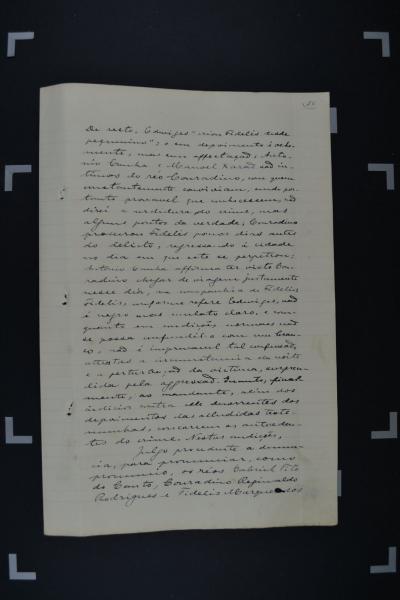 De resto, Edwiges "criou Fidelis desde
pequenino"; o seu depoimento é vehe-
mente, mas sem affectação; Anto-
nio Cunha e Manoel são in-
timos do réo Conradino, com quem
constantemente conviviam, sendo por-
tanto provavel que conhecessem, não
direi a urdidura do crime, mas
alguns pontos da verdade; Conradino
procurou Fidelis poucos dias antes
do delicto, regressando á cidade
no dia em que este se perpetrou;
Antonio Cunha affirma ter visto Con-
radino chegar de viagem justamente
nesse dia, na companhia de Fidelis;
Fidelis, conforme refere Edwiges, não
é negro mas mulato claro, e con-
quanto em condições normaes não
se possa confundil-o com um bran-
co, não é improvavel tal confusão,
attentas a circumstancia da noite
e a perturbação da victima, surpren-
dida pela aggressão. Quanto, final-
mente, ao mandante, além dos
indicios contra elle decorrentes dos
depoimentos das alludidas teste-
munhas, concorrem os anteceden-
tes do crime. Nestas condições,
Julgo procedente a denun-
cia, para pronunciar, como
pronuncio, os réos Gabriel Pito
do Couto, Conradino Reginaldo
Rodrigues e Fidelis Marques dos